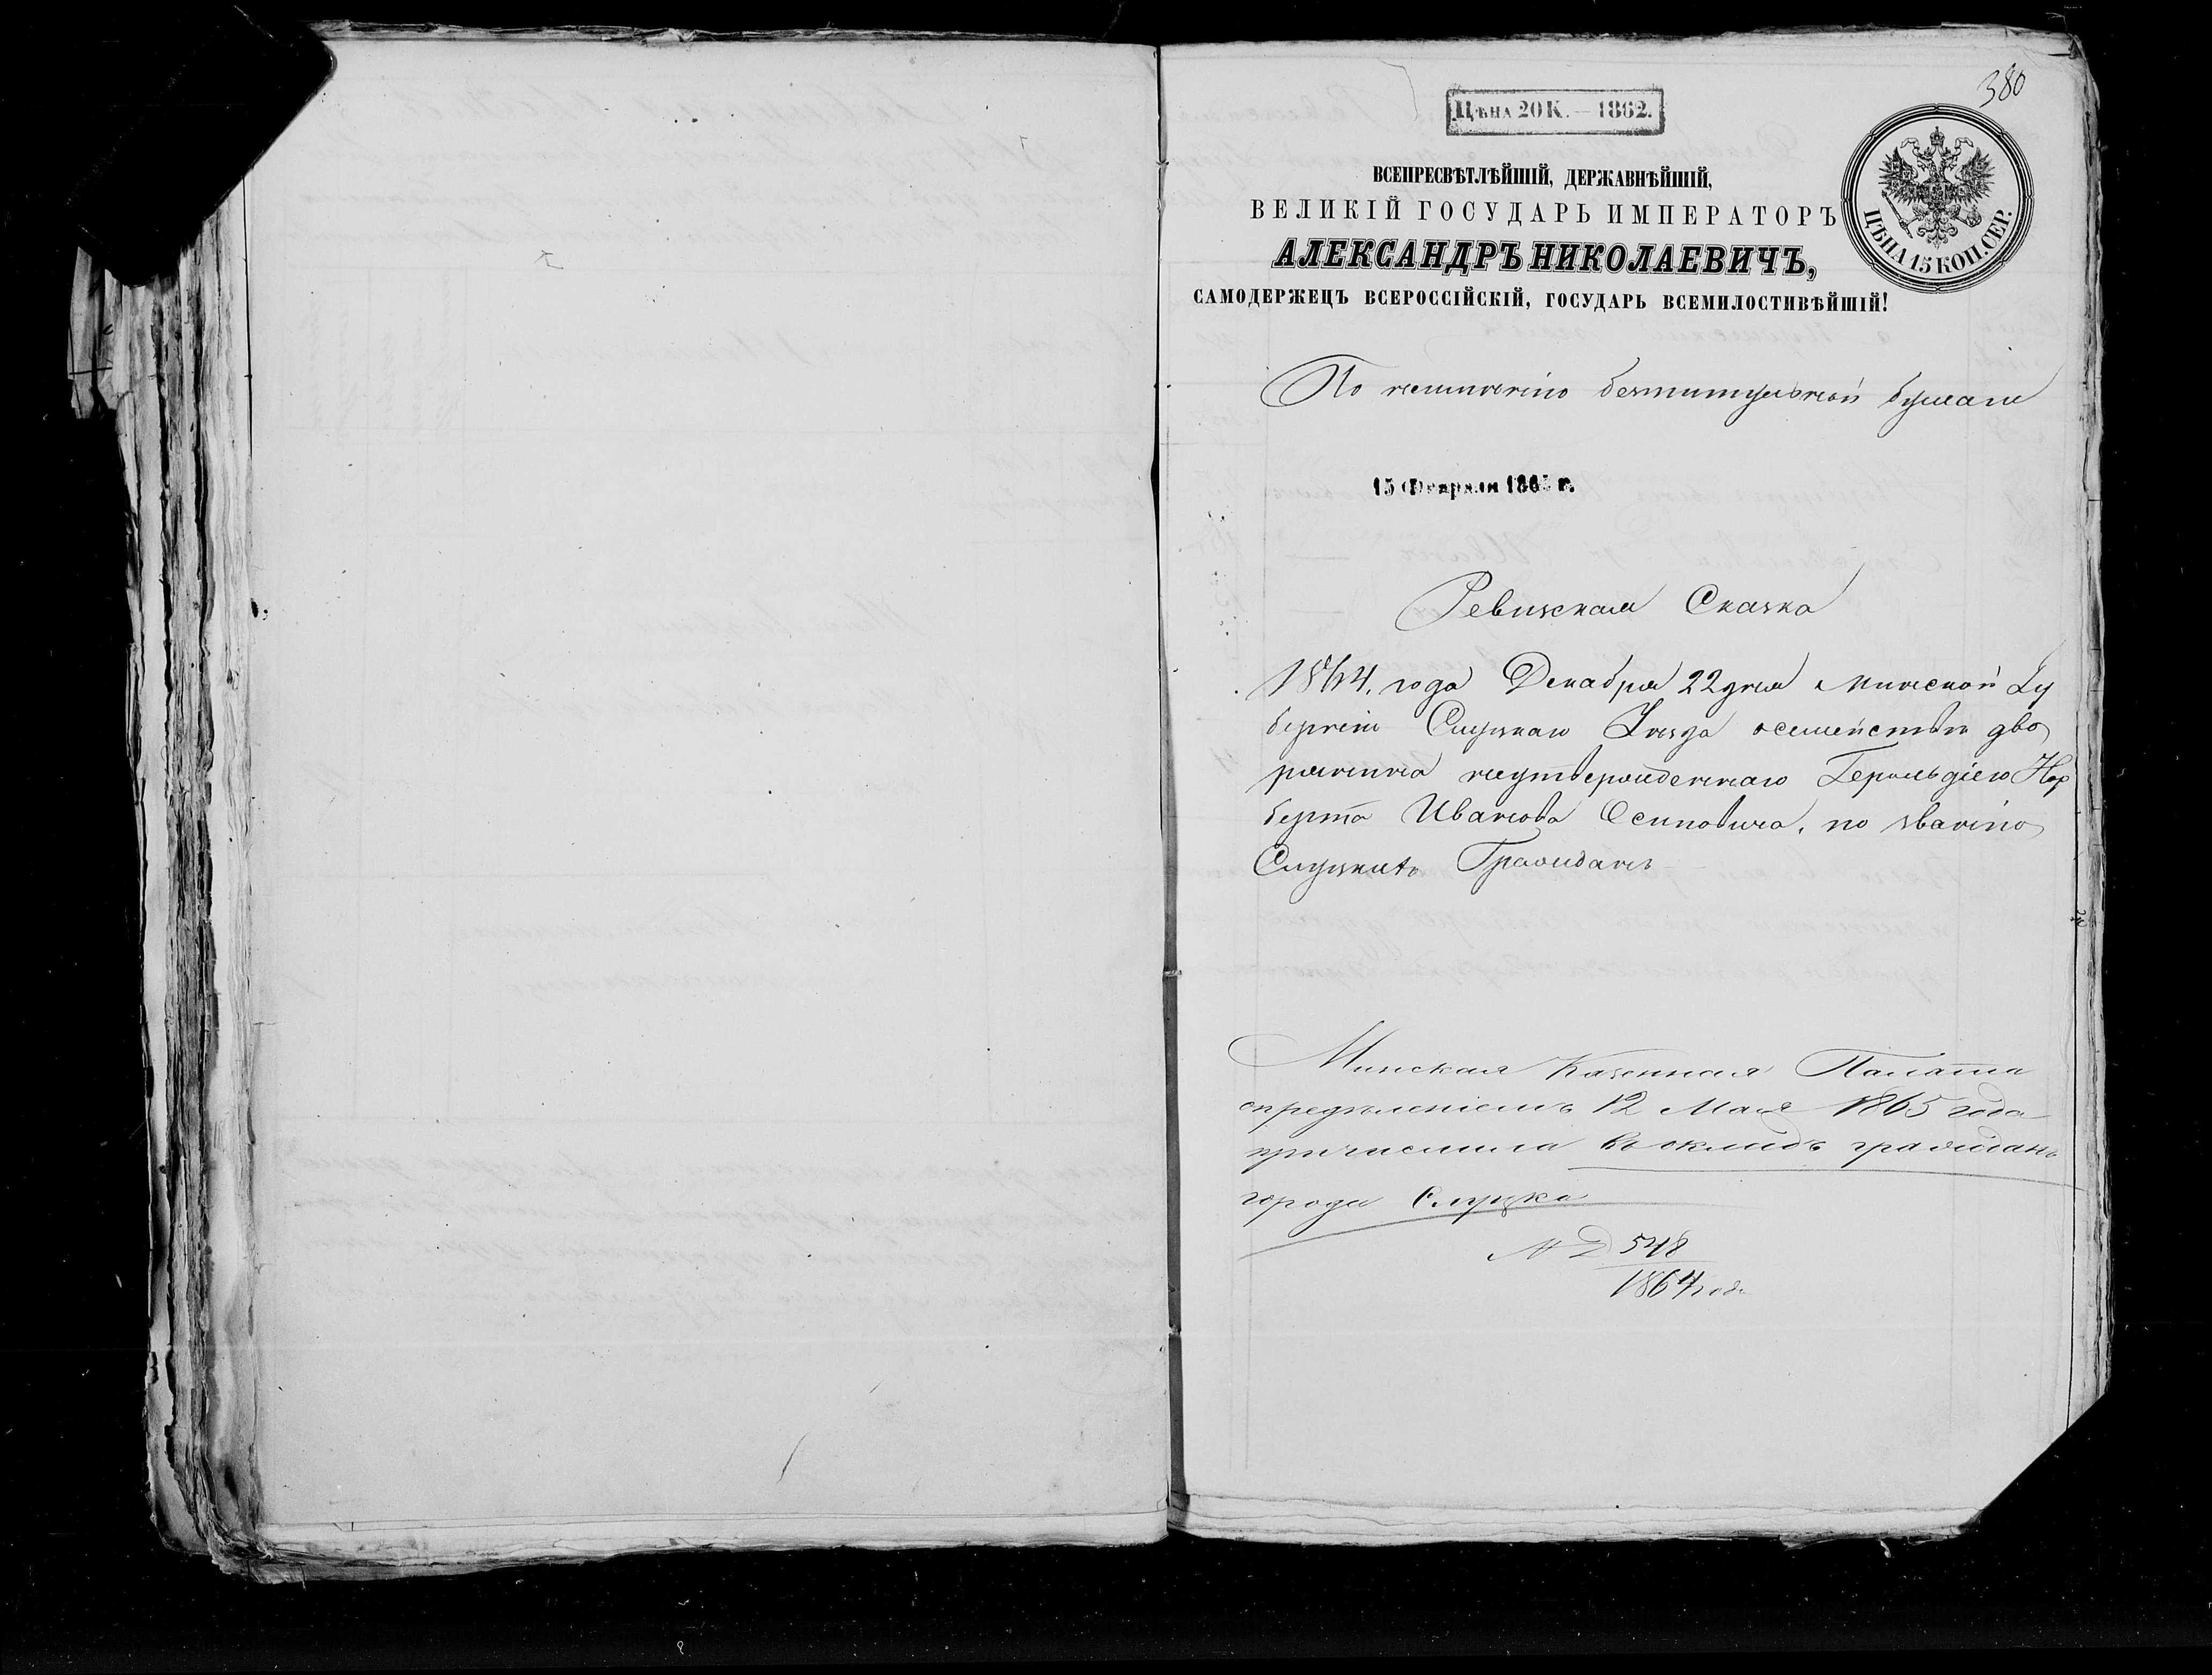 380
ЦѢНА 20 К. — 1862.
ВСЕПРЕСВѢТЛѢЙШІЙ, ДЕРЖАВНѢЙШІЙ,
ВЕЛИКІЙ ГОСУДАРЬ ИМПЕРАТОРЪ
АЛЕКСАНДРЪ НИКОЛАЕВИЧЪ,
САМОДЕРЖЕЦЪ ВСЕРОССІЙСКІЙ, ГОСУДАРЬ ВСЕМИЛОСТИВѢЙШІЙ!
ЦѢНА 15 КОП. СЕР.
По неимѣнію безтитульной бумаги
15 Февраля 1865 г.
Ревизская Сказка
1864. года Декабря 22 дня Минской Гу
берніи Слуцкаго Уѣзда о семействѣ дво
рянина неутвержденнаго Герольдіею Нор
берта Иванова Осиповича, по званію
Слуцкихъ Гражданъ
Минская Казенная Палата
опредѣленіемъ 12 Мая 1865 года
причислила въ окладъ гражданъ
города Слуцка
№ Д 548
1864 года